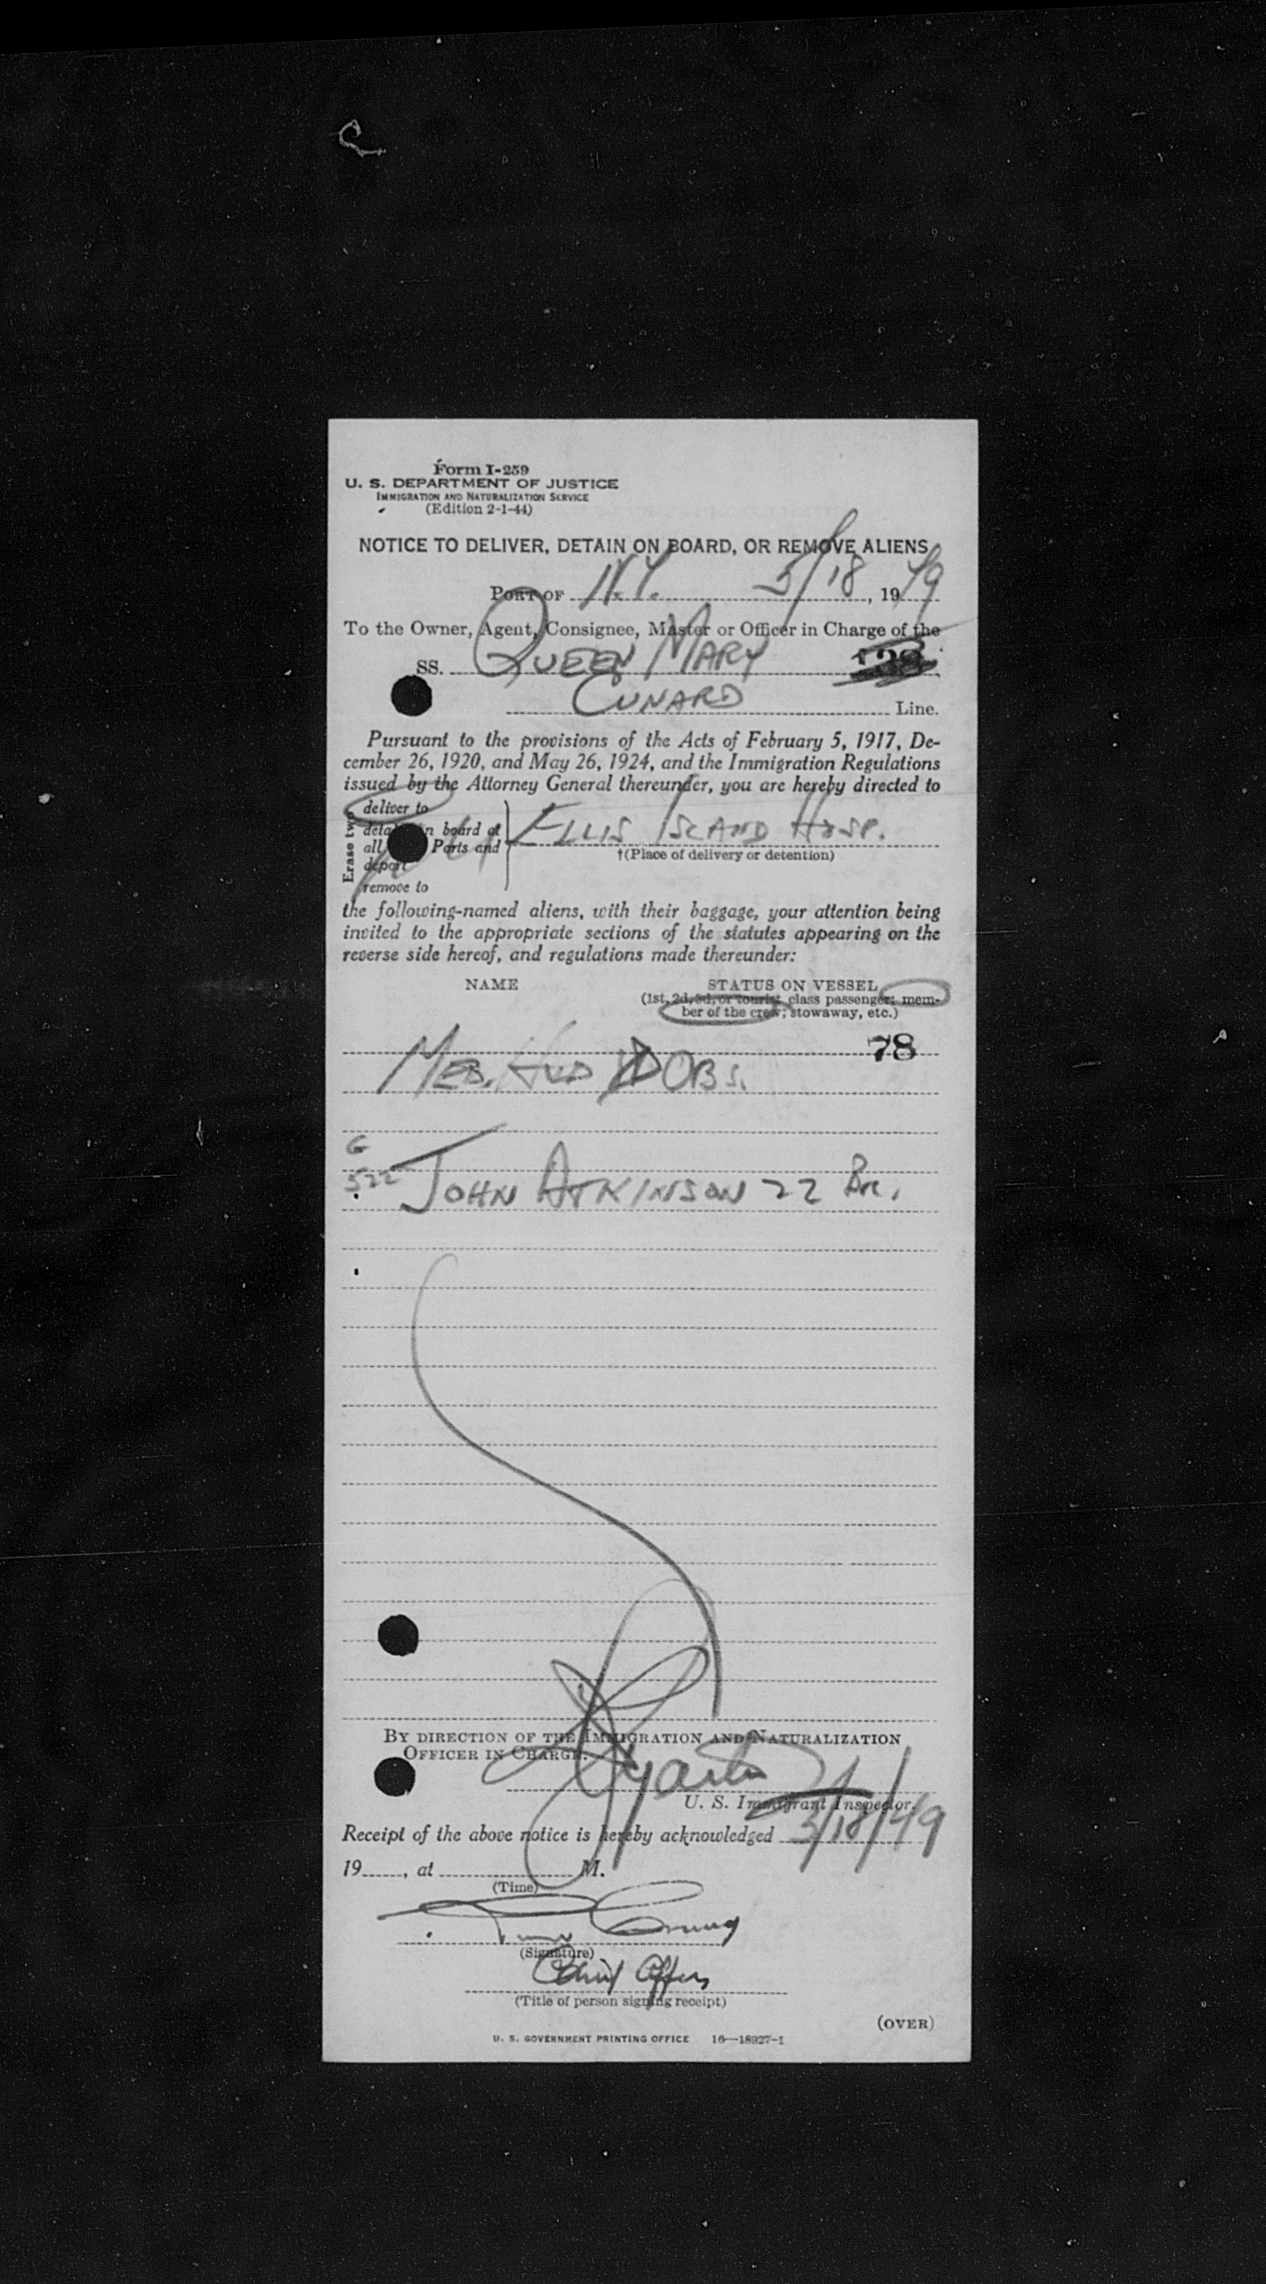 Form I-259
U. S. DEPARTMENT OF JUSTICE
IMMIGRATION AND NATURALIZATION SERVICE
(Edition 2-1-44)
NOTICE TO DELIVER, DETAIN ON BOARD, OR REMOVE ALIENS
PORT OF N.Y. 5/18, 1949
To the Owner, Agent, Consignee, Master or Officer in Charge of the
SS. QUEEN MARY 138
CUNARD Line.
Pursuant to the provisions of the Acts of February 5, 1917, De-
cember 26, 1920, and May 26, 1924, and the Immigration Regulations
issued by the Attorney General thereunder, you are hereby directed to
Erase two
deliver to
detain on board at
all Ports and
deport
remove to
ELLIS ISLAND HOSP.
†(Place of delivery or detention)
the following-named aliens, with their baggage, your attention being
invited to the appropriate sections of the statutes appearing on the
reverse side hereof, and regulations made thereunder:
NAME STATUS ON VESSEL
(1st, 2d, 3d, or tourist class passenger; mem-
ber of the crew; stowaway, etc.)
78
MED. OBS.
G
522 JOHN ATKINSON 22 Br.
BY DIRECTION OF THE IMMIGRATION AND NATURALIZATION
OFFICER IN CHARGE.
U. S. Immigrant Inspector.
Receipt of the above notice is hereby acknowledged 5/18/49
19____, at ____ M.
(Time)
(Signature)
Chief Officer
(Title of person signing receipt)
(OVER)
U. S. GOVERNMENT PRINTING OFFICE 16—18927-1